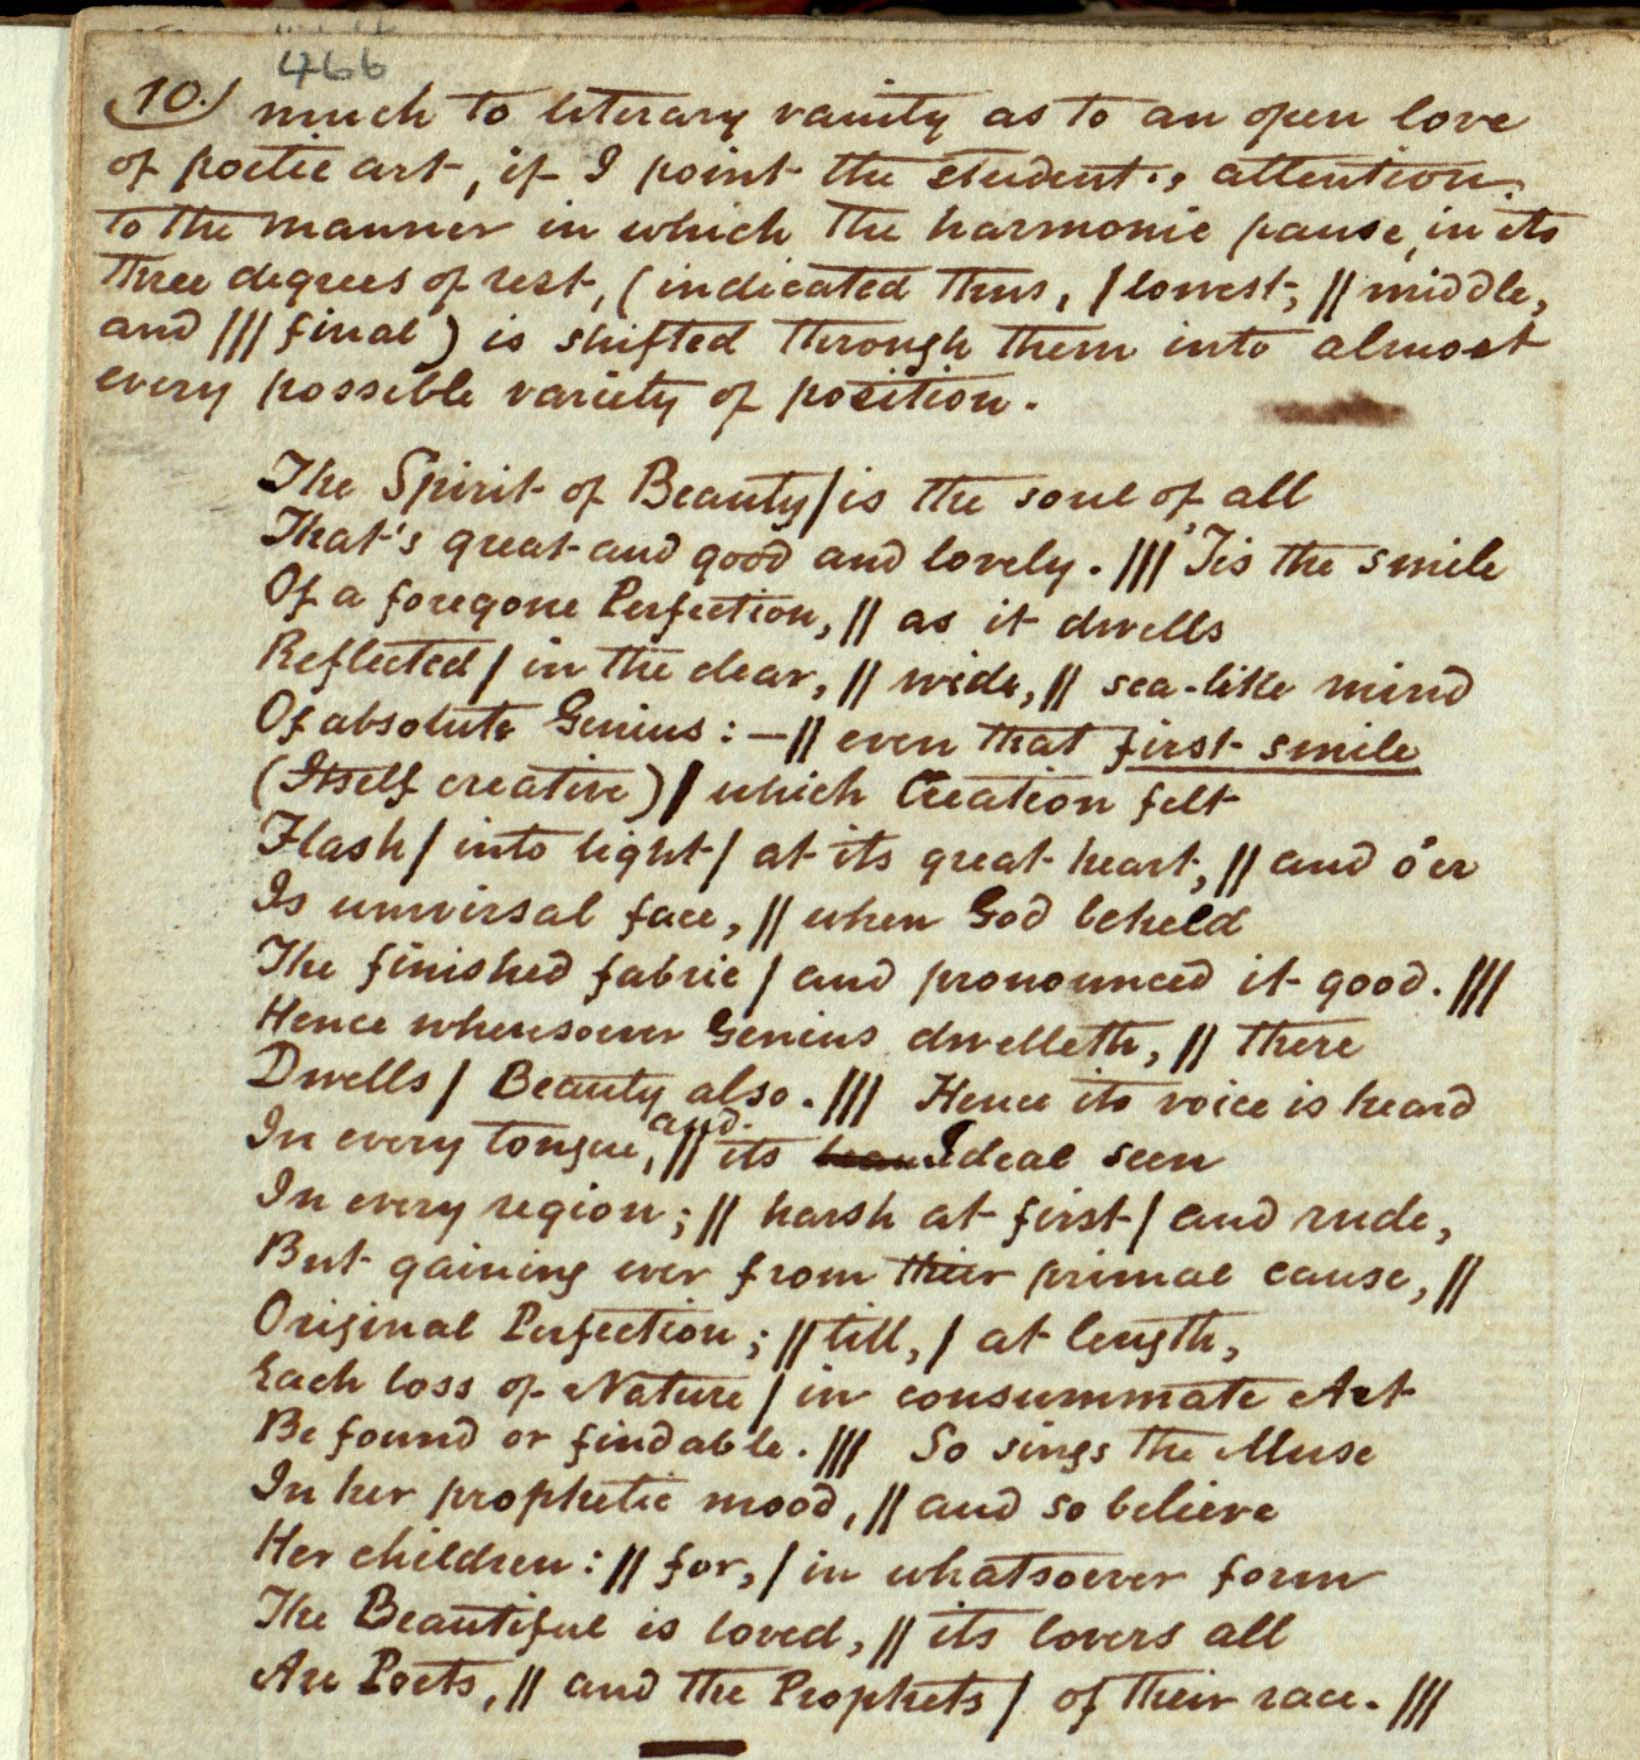 466
10.) much to literary vanity as to an open love
of poetic art, if I point the student's attention
to the manner in which the harmonic pause, in its
three degrees of rest, (indicated thus, / lowest; // middle,
and /// final) is shifted through them into almost
every possible variety of position.
The Spirit of Beauty / is the soul of all
That's great and good and lovely. /// 'Tis the smile
Of a foregone Perfection, // as it dwells
Reflected / in the clear, // wide, // sea-like mind
Of absolute Genius: — // even that first smile
(Itself creative) / which Creation felt
Flash / into light / at its great heart, // and o'er
Is universal face, // when God beheld
The finished fabric / and pronounced it good. ///
Hence wheresoever Genius dwelleth, // there
Dwells / Beauty also. /// Hence its voice is heard
In every tongue, // and its Ideal seen
In every region; // harsh at first / and rude,
But gaining ever from their primal cause, //
Original Perfection; // till, / at length,
Each loss of Nature / in consummate Art
Be found or findable. /// So sings the Muse
In her prophetic mood, // and so believe
Her children: // for, / in whatsoever form
The Beautiful is loved, // its lovers all
Are Poets, // and the Prophets / of their race. ///